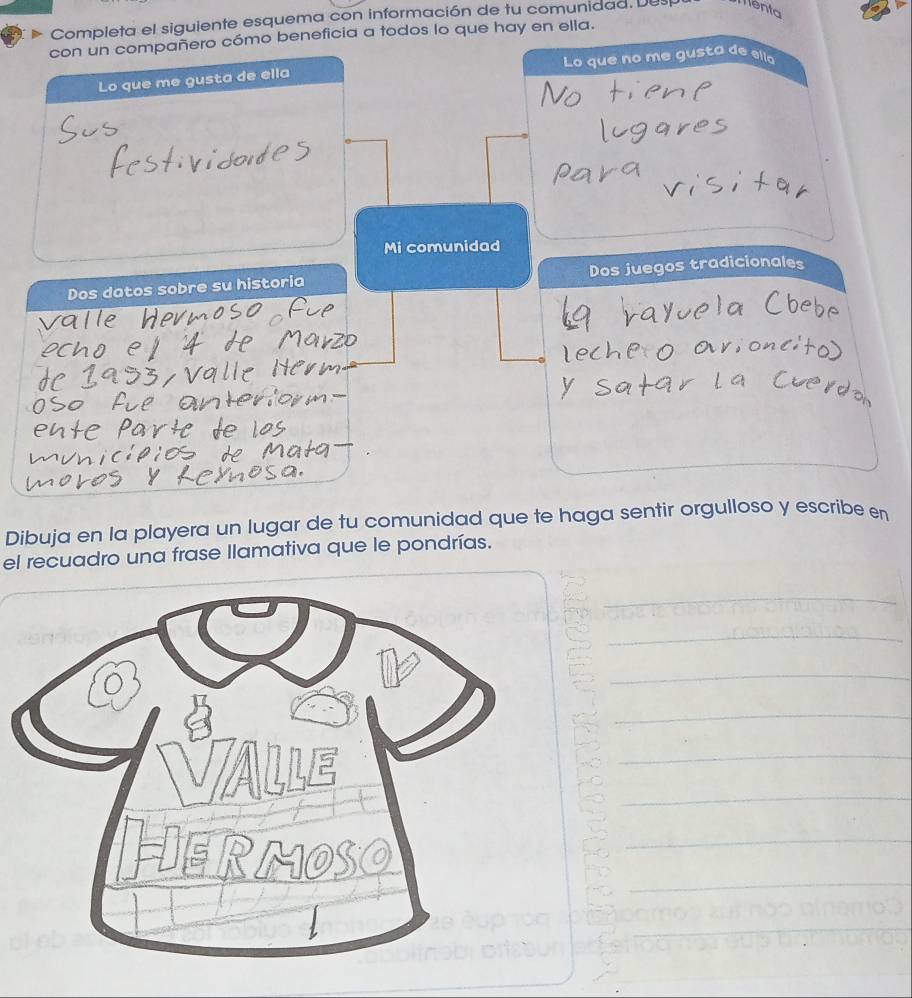 Completa el siguiente esquema con información de tu comunidad.
con un compañero cómo beneficia a todos lo que hay en ella.
Lo que me gusta de ella
Sus
festividades
Lo que no me gusta de ella
No tiene
lugares
para
visitar
Mi comunidad
Dos datos sobre su historia
valle Hermoso fue
echo el 4 de Marzo
de 1953, valle Herm-
oso fue anteriorm-
ente Parte de los
municipios de Mata-
moros y Reynosa.
Dos juegos tradicionales
la rayuela (bebe
leche o arioncito)
y satar la cuerda
Dibuja en la playera un lugar de tu comunidad que te haga sentir orgulloso y escribe en
el recuadro una frase llamativa que le pondrías.
VALLE
HERMOSO